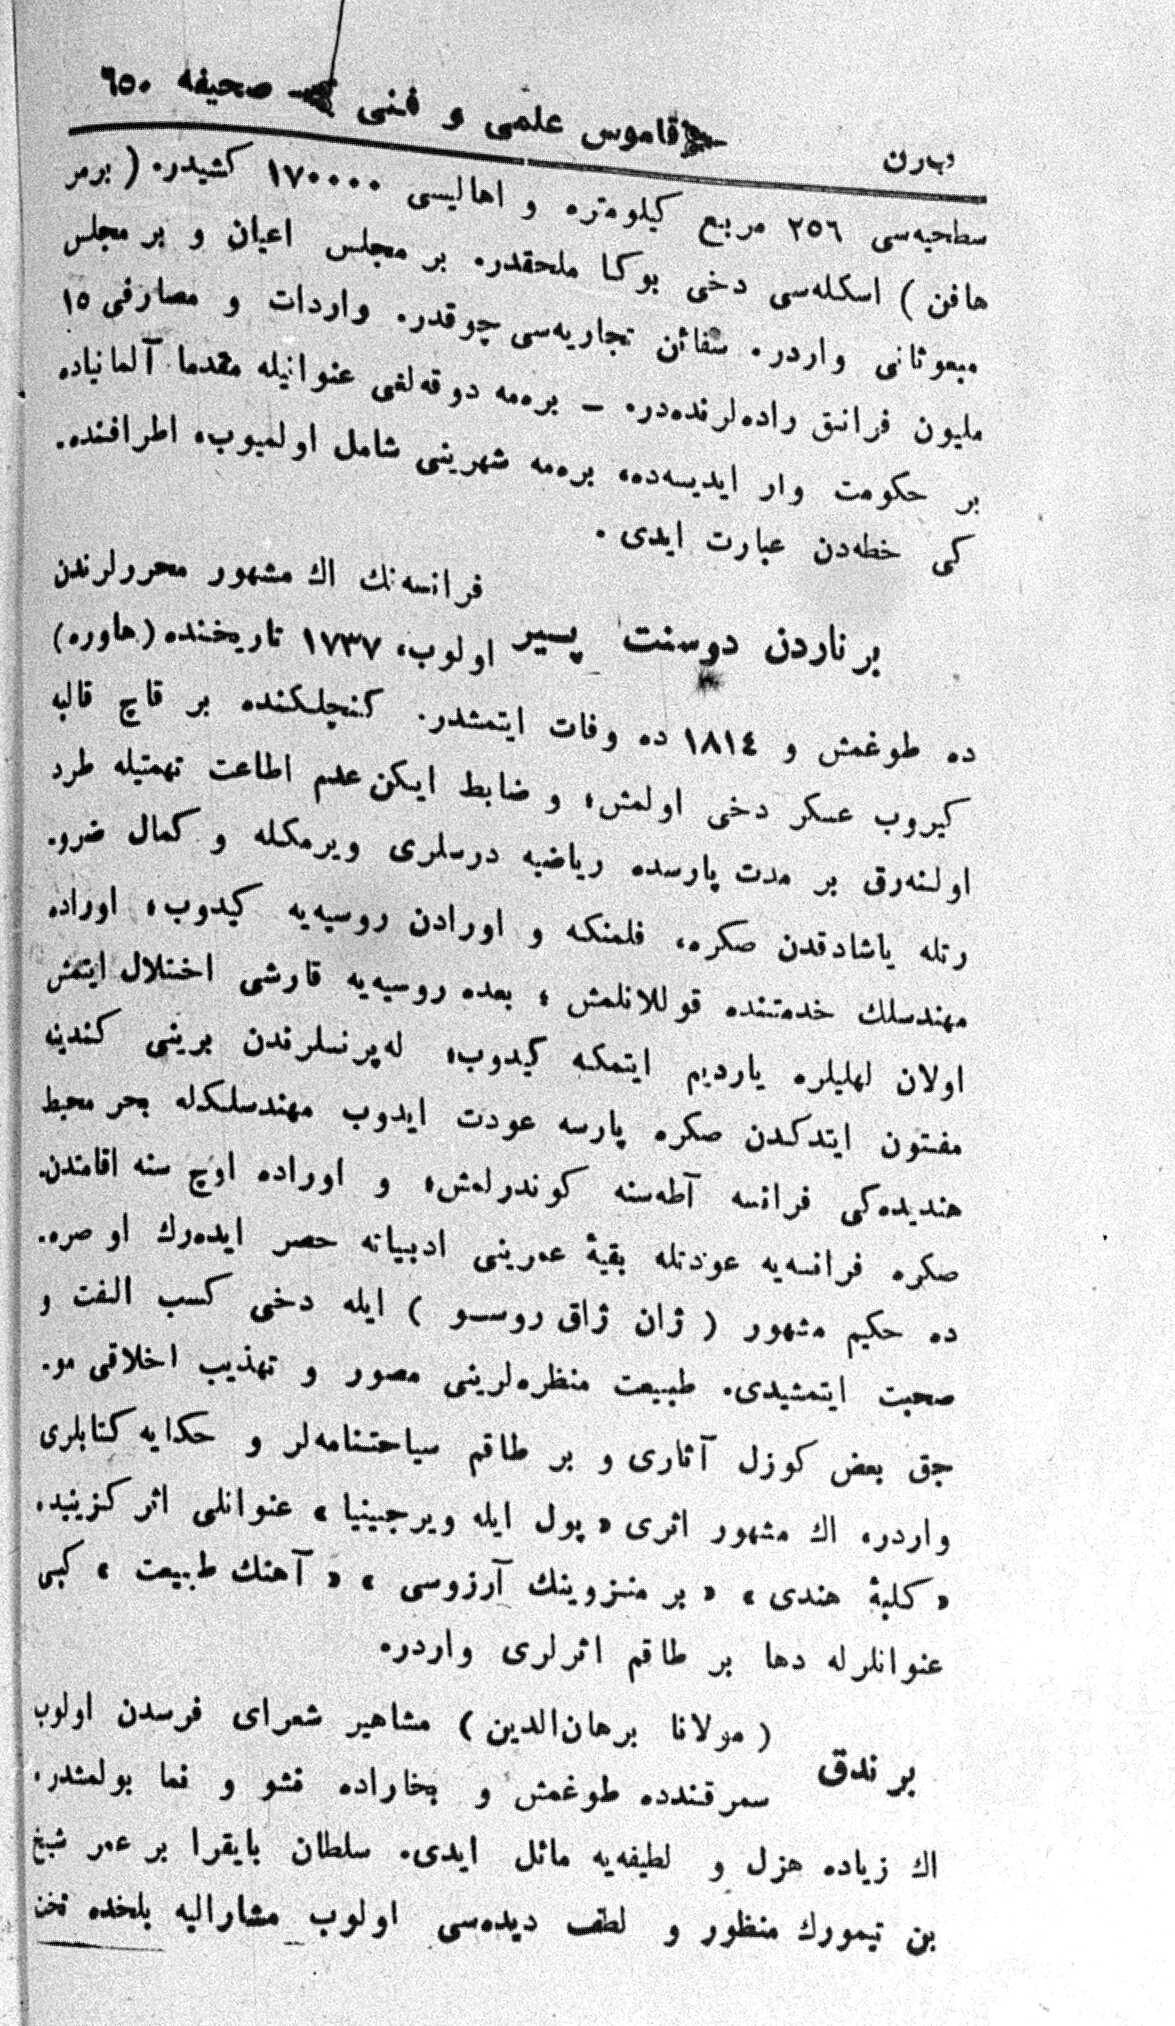 برن قاموس علمی و فنی صحیفه ٦٥٠
سطحیه‌سی ٢٥٦ مربع کیلومتره و اهالیسی ١٧٠٠٠٠ کشیدر. ( برمر
هافن ) اسکله‌سی دخی بوکا ملحقدر. بر مجلس اعیان و بر مجلس
مبعوثانی واردر. سفائن تجاریه‌سی چوقدر. واردات و مصارفی ١٥
ملیون فرانق راده‌لرنده‌در. – بره‌مه دوقه‌لغی عنوانیله مقدما آلمانیاده
بر حکومت وار ایدیسه‌ده، بره‌مه شهرینی شامل اولمیوب، اطرافنده.
کی خطه‌دن عبارت ایدی .
فرانسه‌نك اك مشهور محررلرندن
برناردن دوسنت پسیر اولوب، ١٧٣٧ تاریخنده (هاوره)
ده طوغمش و ١٨١٤ ده وفات ایتمشدر. کنجلکنده بر قاچ قالبه
کیروب عسکر دخی اولمش، و ضابط ایکن عدم اطاعت تهمتیله طرد
اولنه‌رق بر مدت پارسده ریاضیه درسلری ویرمکله و کمال ضرو.
رتله یاشادقدن صکره، فلمنکه و اورادن روسیه‌یه کیدوب، اوراده
مهندسلك خدمتنده قوللانلمش ، بعده روسیه‌یه قارشی اختلال ایتمش
اولان لهلیلره یاردیم ایتمکه کیدوب، له‌پرنسلرندن برینی کندینه
مفتون ایتدکدن صکره پارسه عودت ایدوب مهندسلکله بحر محیط
هندیده‌کی فرانسه آطه‌سنه کوندرلمش، و اوراده اوچ سنه اقامتدن.
صکره فرانسه‌یه عودتله بقیهٔ عمرینی ادبیاته حصر ایده‌رك او صره.
ده حکیم مشهور ( ژان ژاق روسو ) ایله دخی کسب الفت و
صحبت ایتمشیدی. طبیعت منظره‌لرینی مصور و تهذیب اخلاقی مو.
جق بعض کوزل آثاری و بر طاقم سیاحتنامه‌لر و حکایه کتابلری
واردر. اك مشهور اثری « پول ایله ویرجینیا » عنوانلی اثر کزینیده.
« کلبهٔ هندی » « بر منزوینك آرزوسی » « آهنك طبیعت » کبی
عنوانلرله دها بر طاقم اثرلری واردر.
( مولانا برهان‌الدین ) مشاهیر شعرای فرسدن اولوب
برندق سمرقندده طوغمش و بخاراده نشو و نما بولمشدر.
اك زیاده هزل و لطیفه‌یه مائل ایدی. سلطان بایقرا بر عمر شیخ
بن تیمورك منظور و لطف دیده‌سی اولوب مشارالیه بلخده تخن